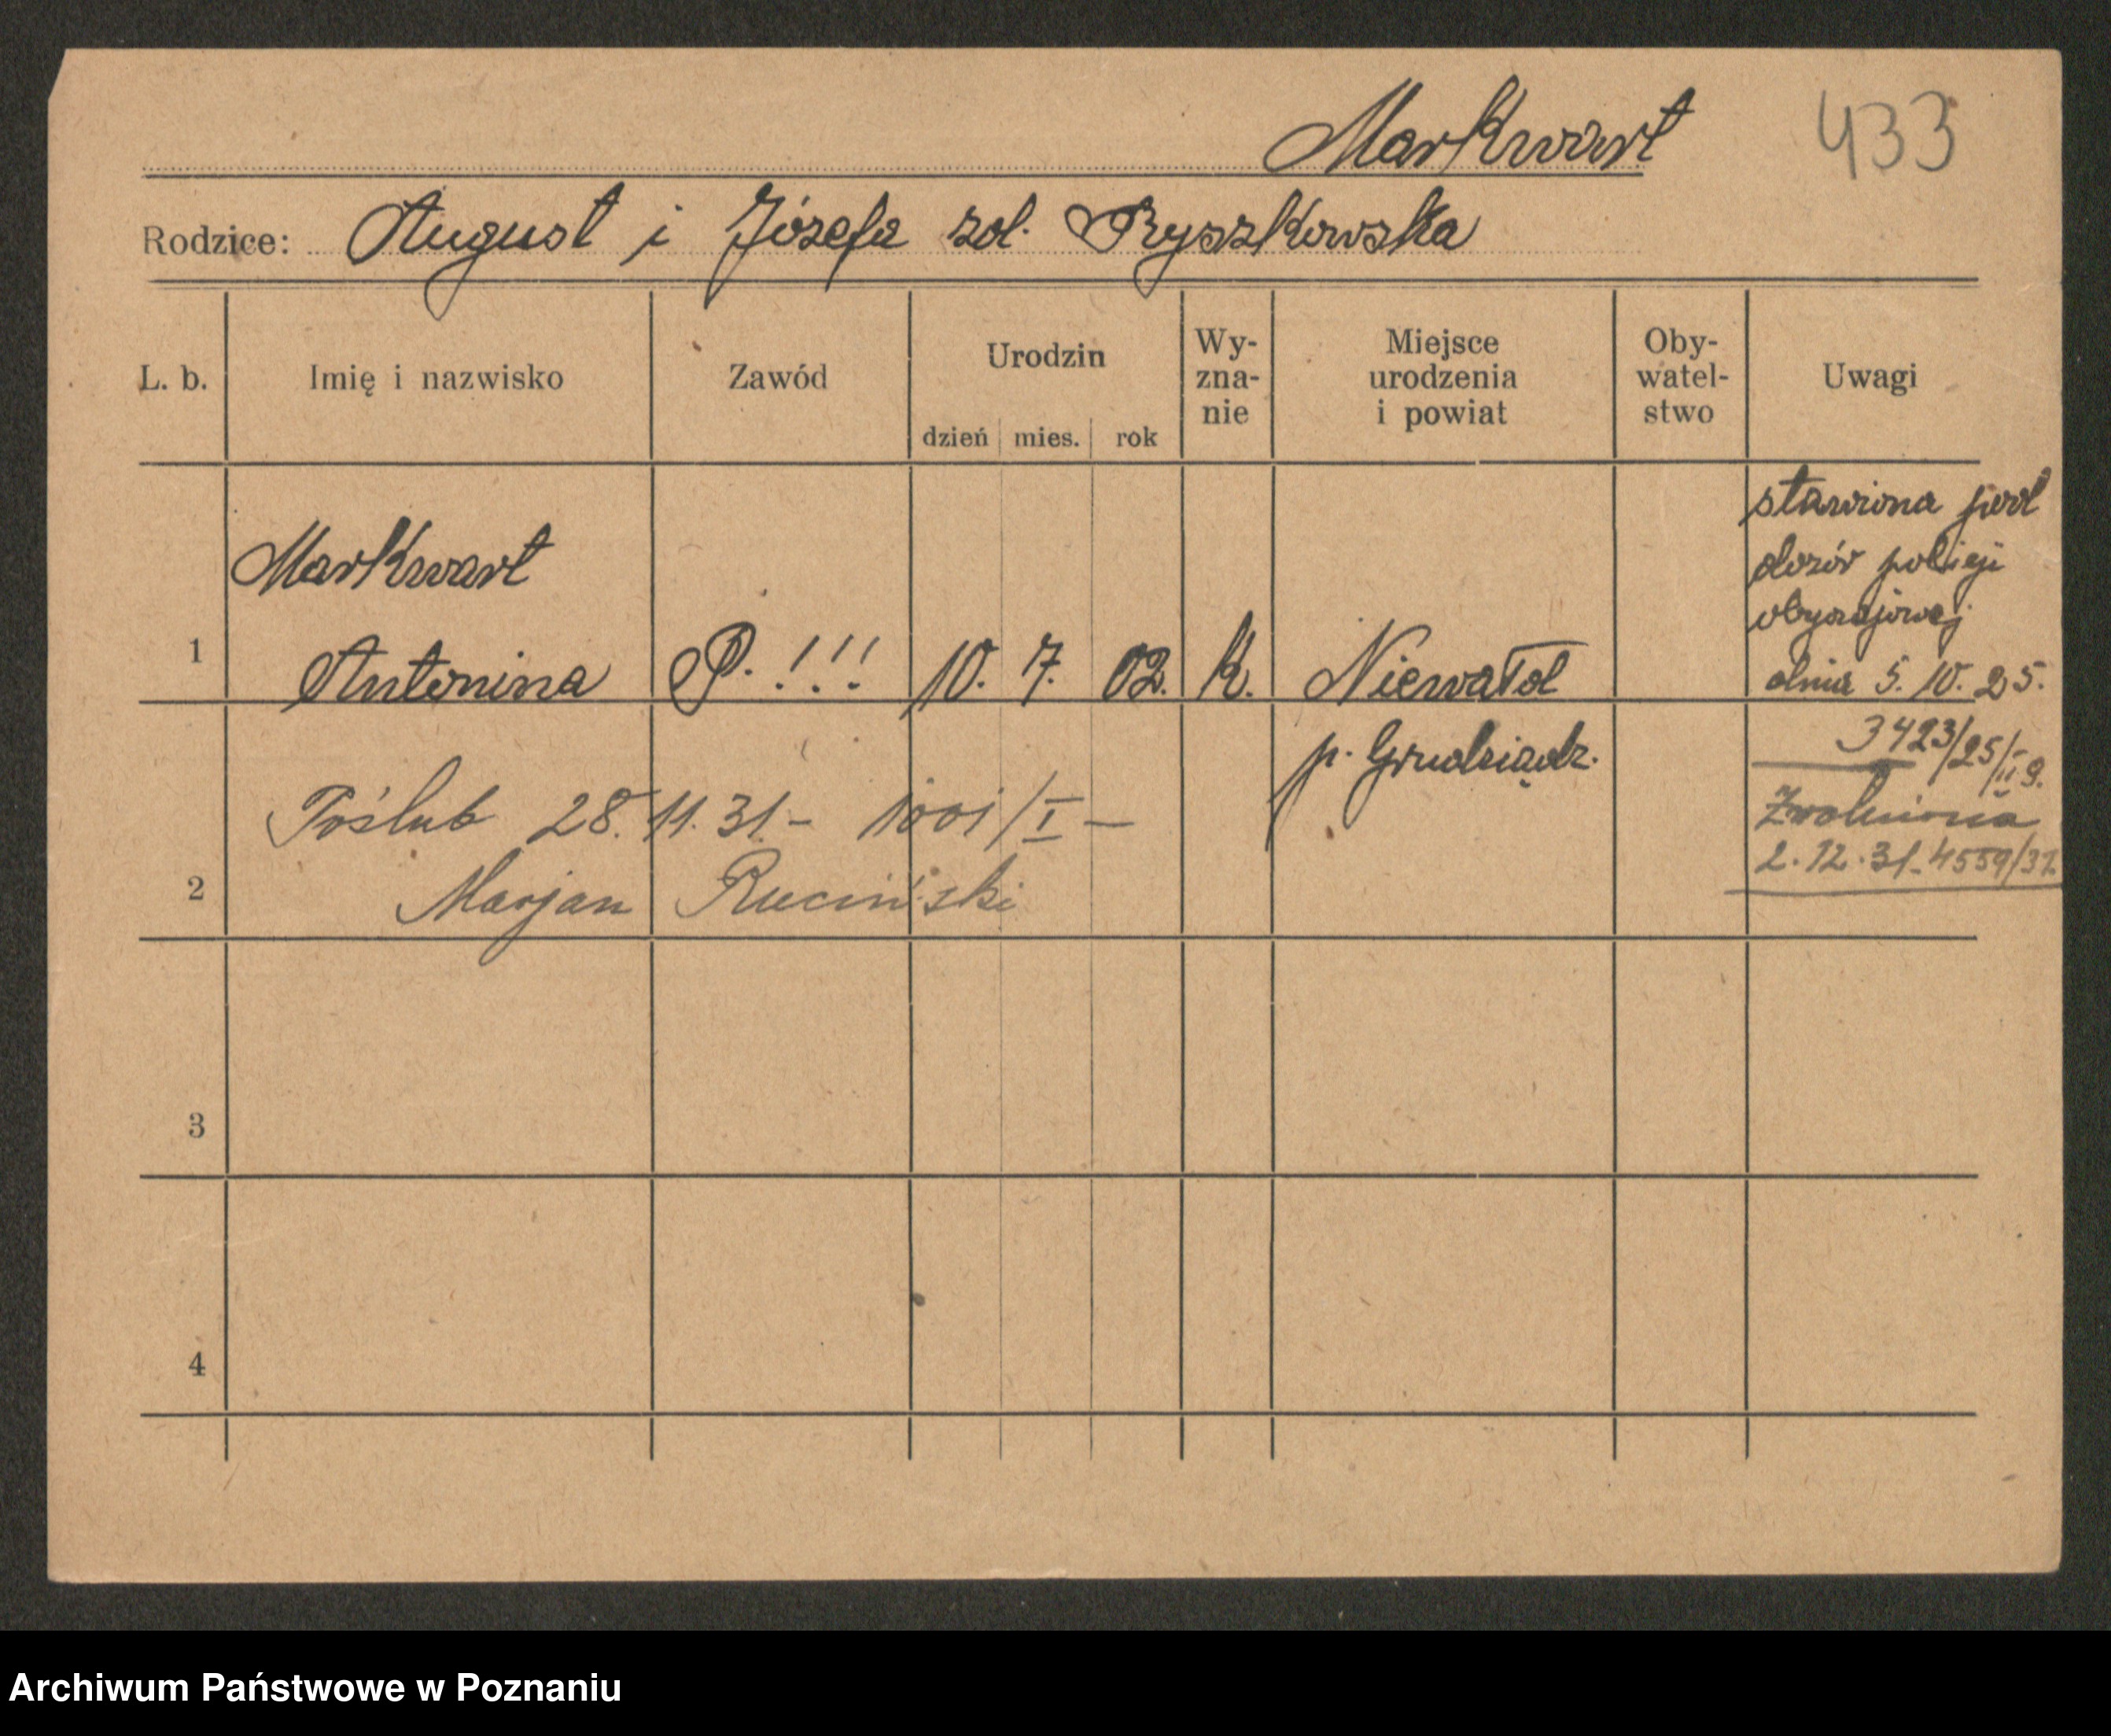 Markwart 433
Rodzice: August i Józefa zol. Ryszkowska
L. b. Imię i nazwisko Zawód Urodzin dzień mies. rok Wy-zna-nie Miejsce urodzenia i powiat Oby-watel-stwo Uwagi
stawiona pod
dozór policji
obyczajowej
dnia 5. 10. 25.
3423/25/II 9.
Zwolniona
2.12.31. 4559/31.
Markwart
1 Antonina P. !!! 10. 7. 02. K. Niewałd
p. Grudziądz.
Poślub 28.11.31 - 1001/I -
2 Marjan Ruciński
3
4
Archiwum Państwowe w Poznaniu